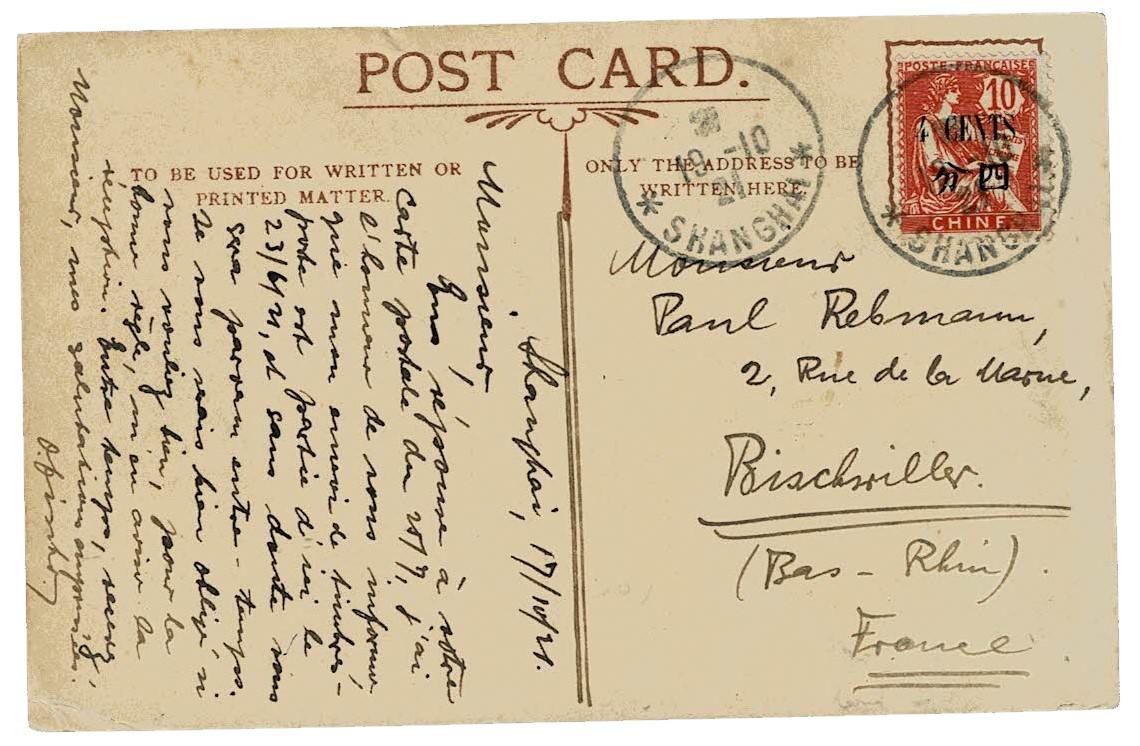 POST CARD.
TO BE USED FOR WRITTEN OR
PRINTED MATTER.
ONLY THE ADDRESS TO BE
WRITTEN HERE.
POSTE FRANÇAISE
10
4 CENTS
分 四
CHINE
19 -10
21
* SHANGHAI *
* SHANGHAI *
Shanghai, 17/10/21.
Monsieur,
En réponse à votre
carte postale du 20/7, j'ai
l'honneur de vous informer
que mon envoi de timbres-
poste est partie d'ici le
23/6/21, et sans doute vous
sera parvenu entre-temps.
Je vous serais bien obligé si
vous vouliez bien, pour la
bonne règle, m'en aviser la
réception. Entre temps, recevez,
Monsieur, mes salutations empressées.
Monsieur
Paul Rebmann,
2, Rue de la Marne,
Bischwiller.
(Bas-Rhin).
France